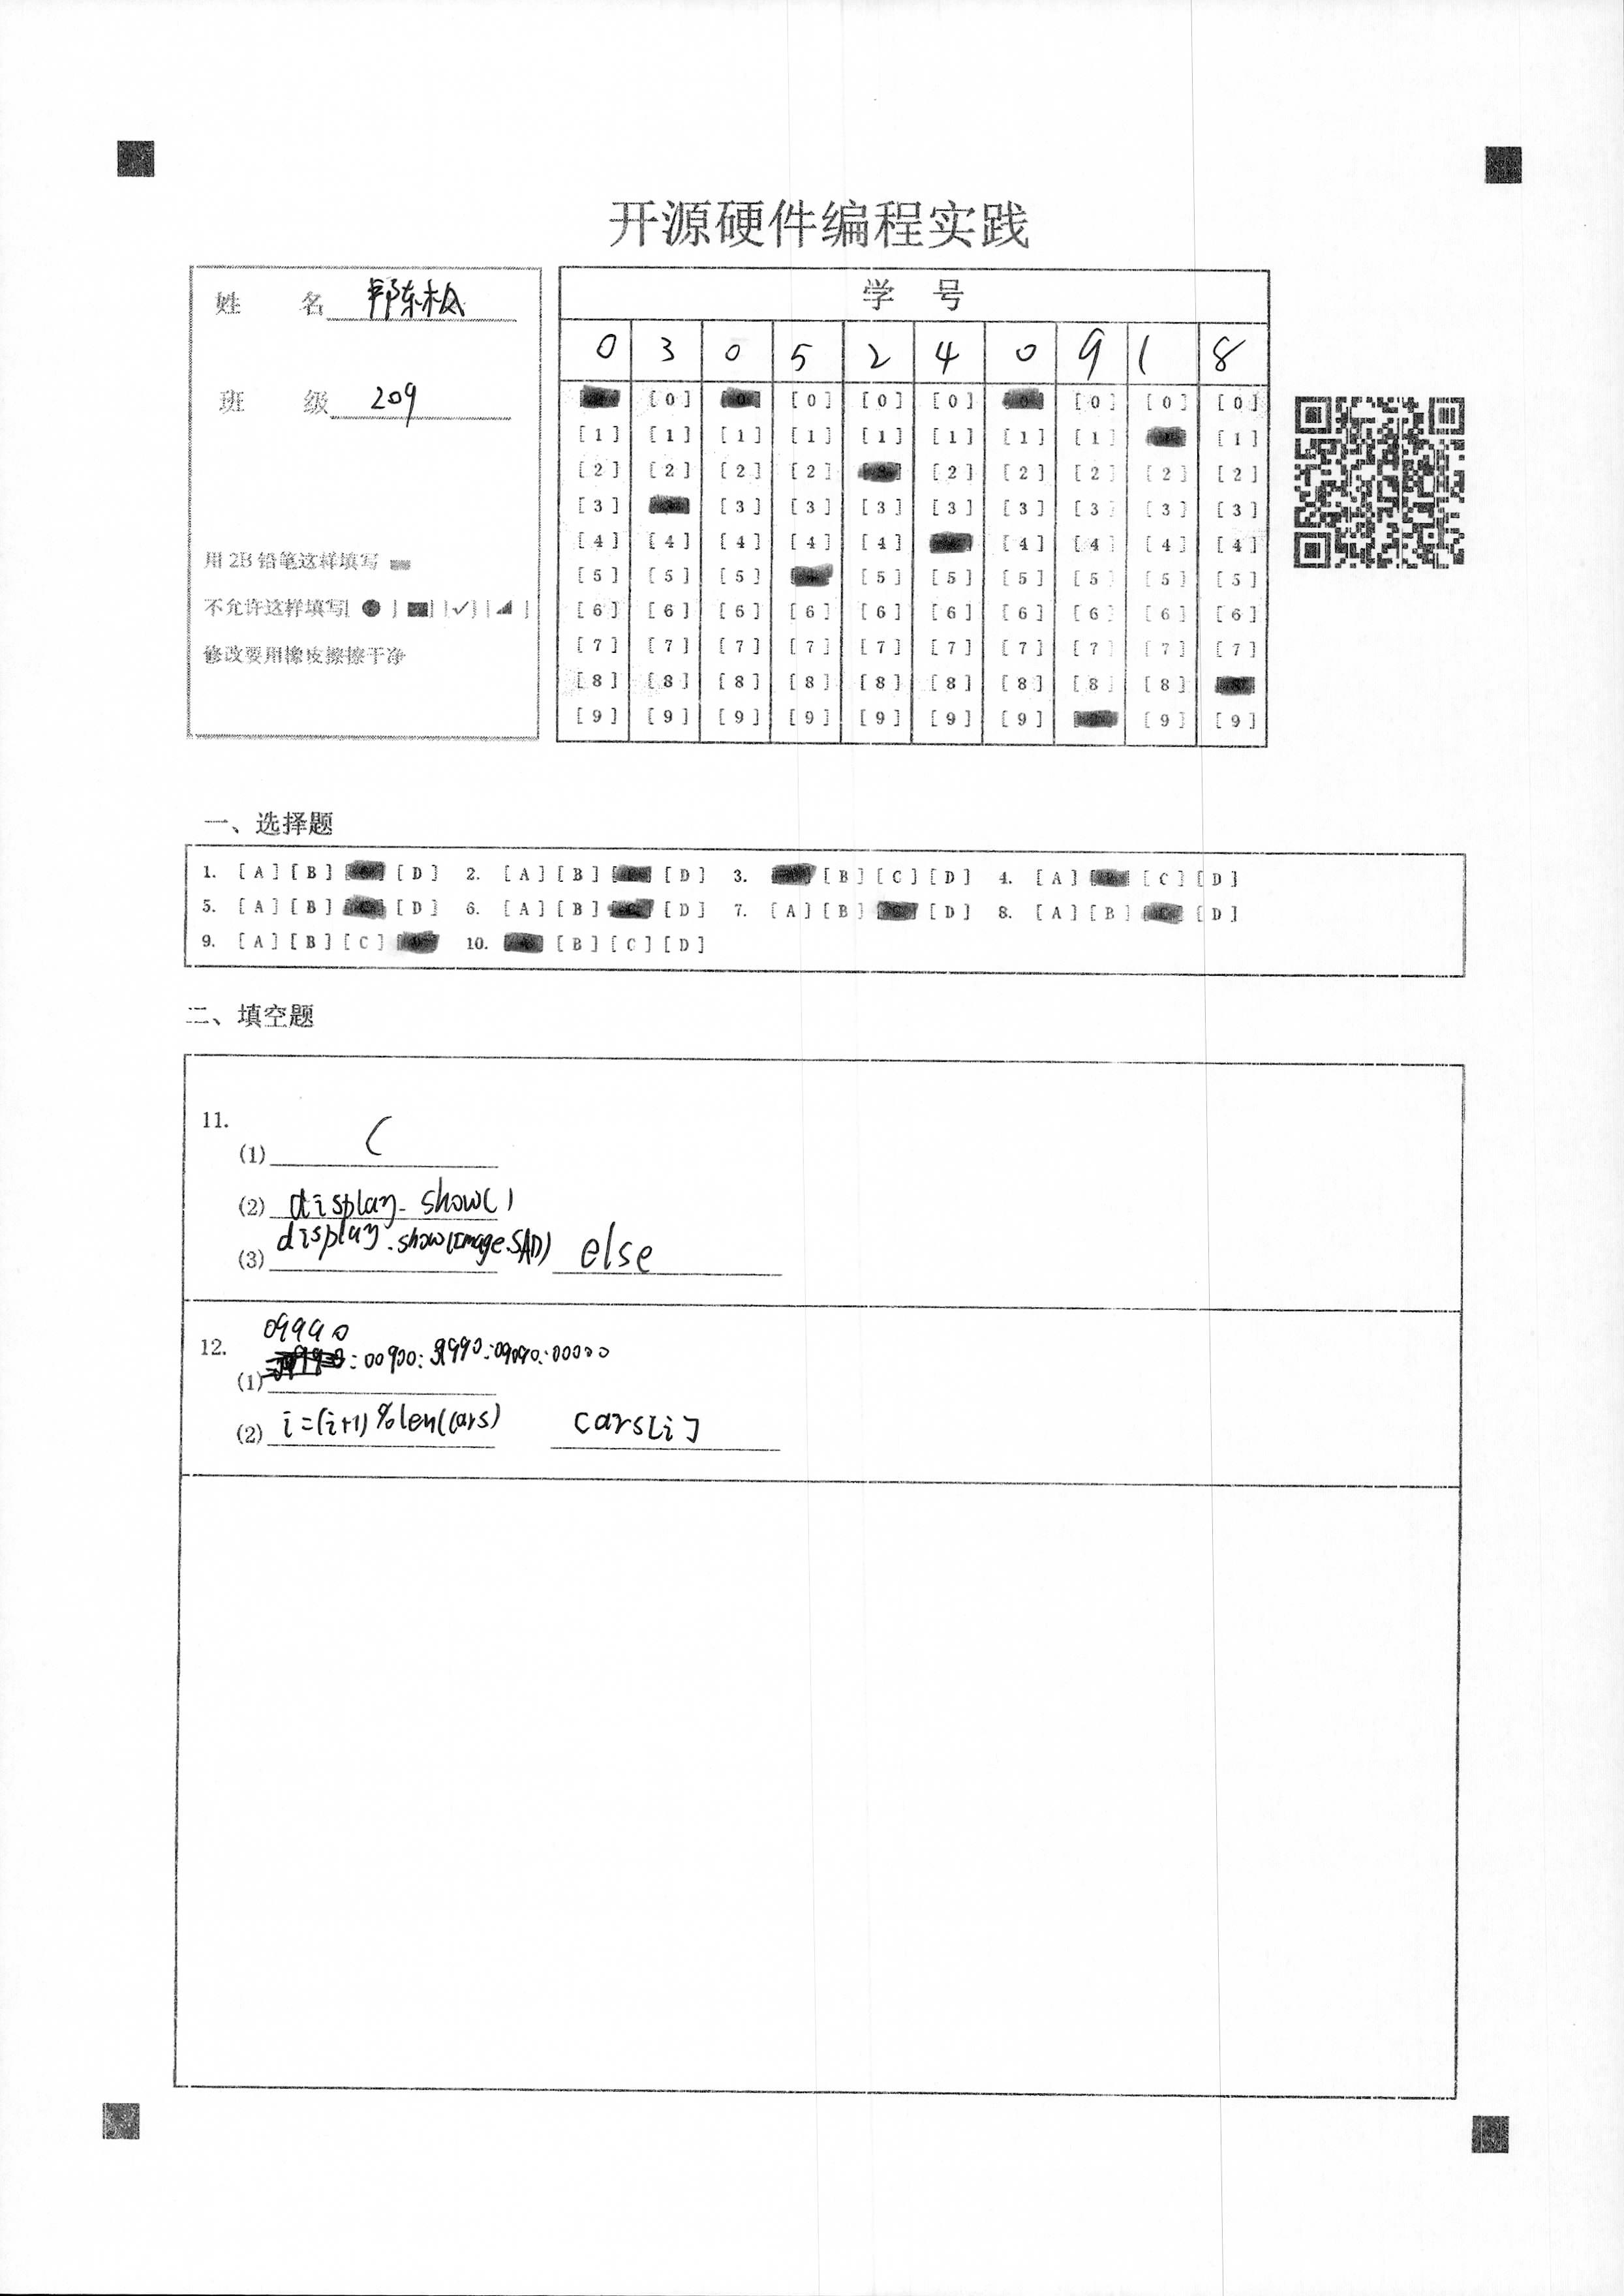 开源硬件编程实践
姓 名 郭东松
班 级 209
用 2B 铅笔这样填写
不允许这样填写[ ● ] [■] [✓] [◢ ]
修改要用橡皮擦擦干净
学 号
0 3 0 5 2 4 0 9 1 8
[0] [0] [0] [0] [0] [0] [0]
[1] [1] [1] [1] [1] [1] [1] [1] [1]
[2] [2] [2] [2] [2] [2] [2] [2] [2]
[3] [3] [3] [3] [3] [3] [3] [3] [3]
[4] [4] [4] [4] [4] [4] [4] [4] [4]
[5] [5] [5] [5] [5] [5] [5] [5] [5]
[6] [6] [6] [6] [6] [6] [6] [6] [6] [6]
[7] [7] [7] [7] [7] [7] [7] [7] [7] [7]
[8] [8] [8] [8] [8] [8] [8] [8] [8]
[9] [9] [9] [9] [9] [9] [9] [9] [9]
一、选择题
1. [A] [B] [D] 2. [A] [B] [D] 3. [B] [C] [D] 4. [A] [C] [D]
5. [A] [B] [D] 6. [A] [B] [D] 7. [A] [B] [D] 8. [A] [B] [D]
9. [A] [B] [C] 10. [B] [C] [D]
二、填空题
11.
(1) C
(2) display. show( )
(3) display.show(Image.SAD) else
12.
09990
(1) :00900:99990:09090:00000
(2) i=(i+1)%len(cars) cars[i]